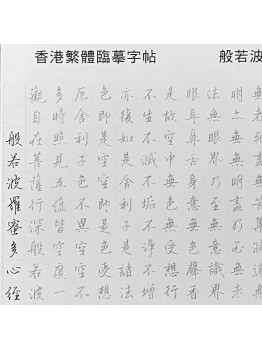 香港繁體臨摹字帖
般若波
般若波羅蜜多心經
觀自在菩薩行深般若波
多時照見五蘊皆空度一
厄舍利子色不異空空不
色即是空空即是色受想
亦復如是舍利子是諸法
不生不滅不垢不淨不增
是故空中無色無受想行
眼耳鼻舌身意無色聲香
法無眼界乃至無意識界
明亦無無明盡乃至無老